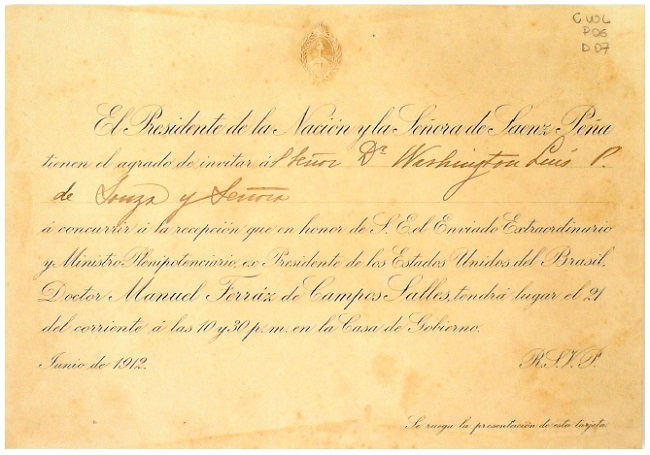 C WL
P06
D.07
El Presidente de la Nación y la Señora de Saenz Peña
tienen el agrado de invitar á Señor Dr. Washington Luis P.
de Souza y Señora
á concurrir á la recepción que en honor de S. E. el Enviado Extraordinario
y Ministro Plenipotenciario, ex Presidente de los Estados Unidos del Brasil,
Doctor Manuel Ferráz de Campos Salles, tendrá lugar el 21
del corriente á las 10 y 30 p. m. en la Casa de Gobierno.
Junio de 1912. R.S.V.P.
Se ruega la presentación de esta tarjeta.